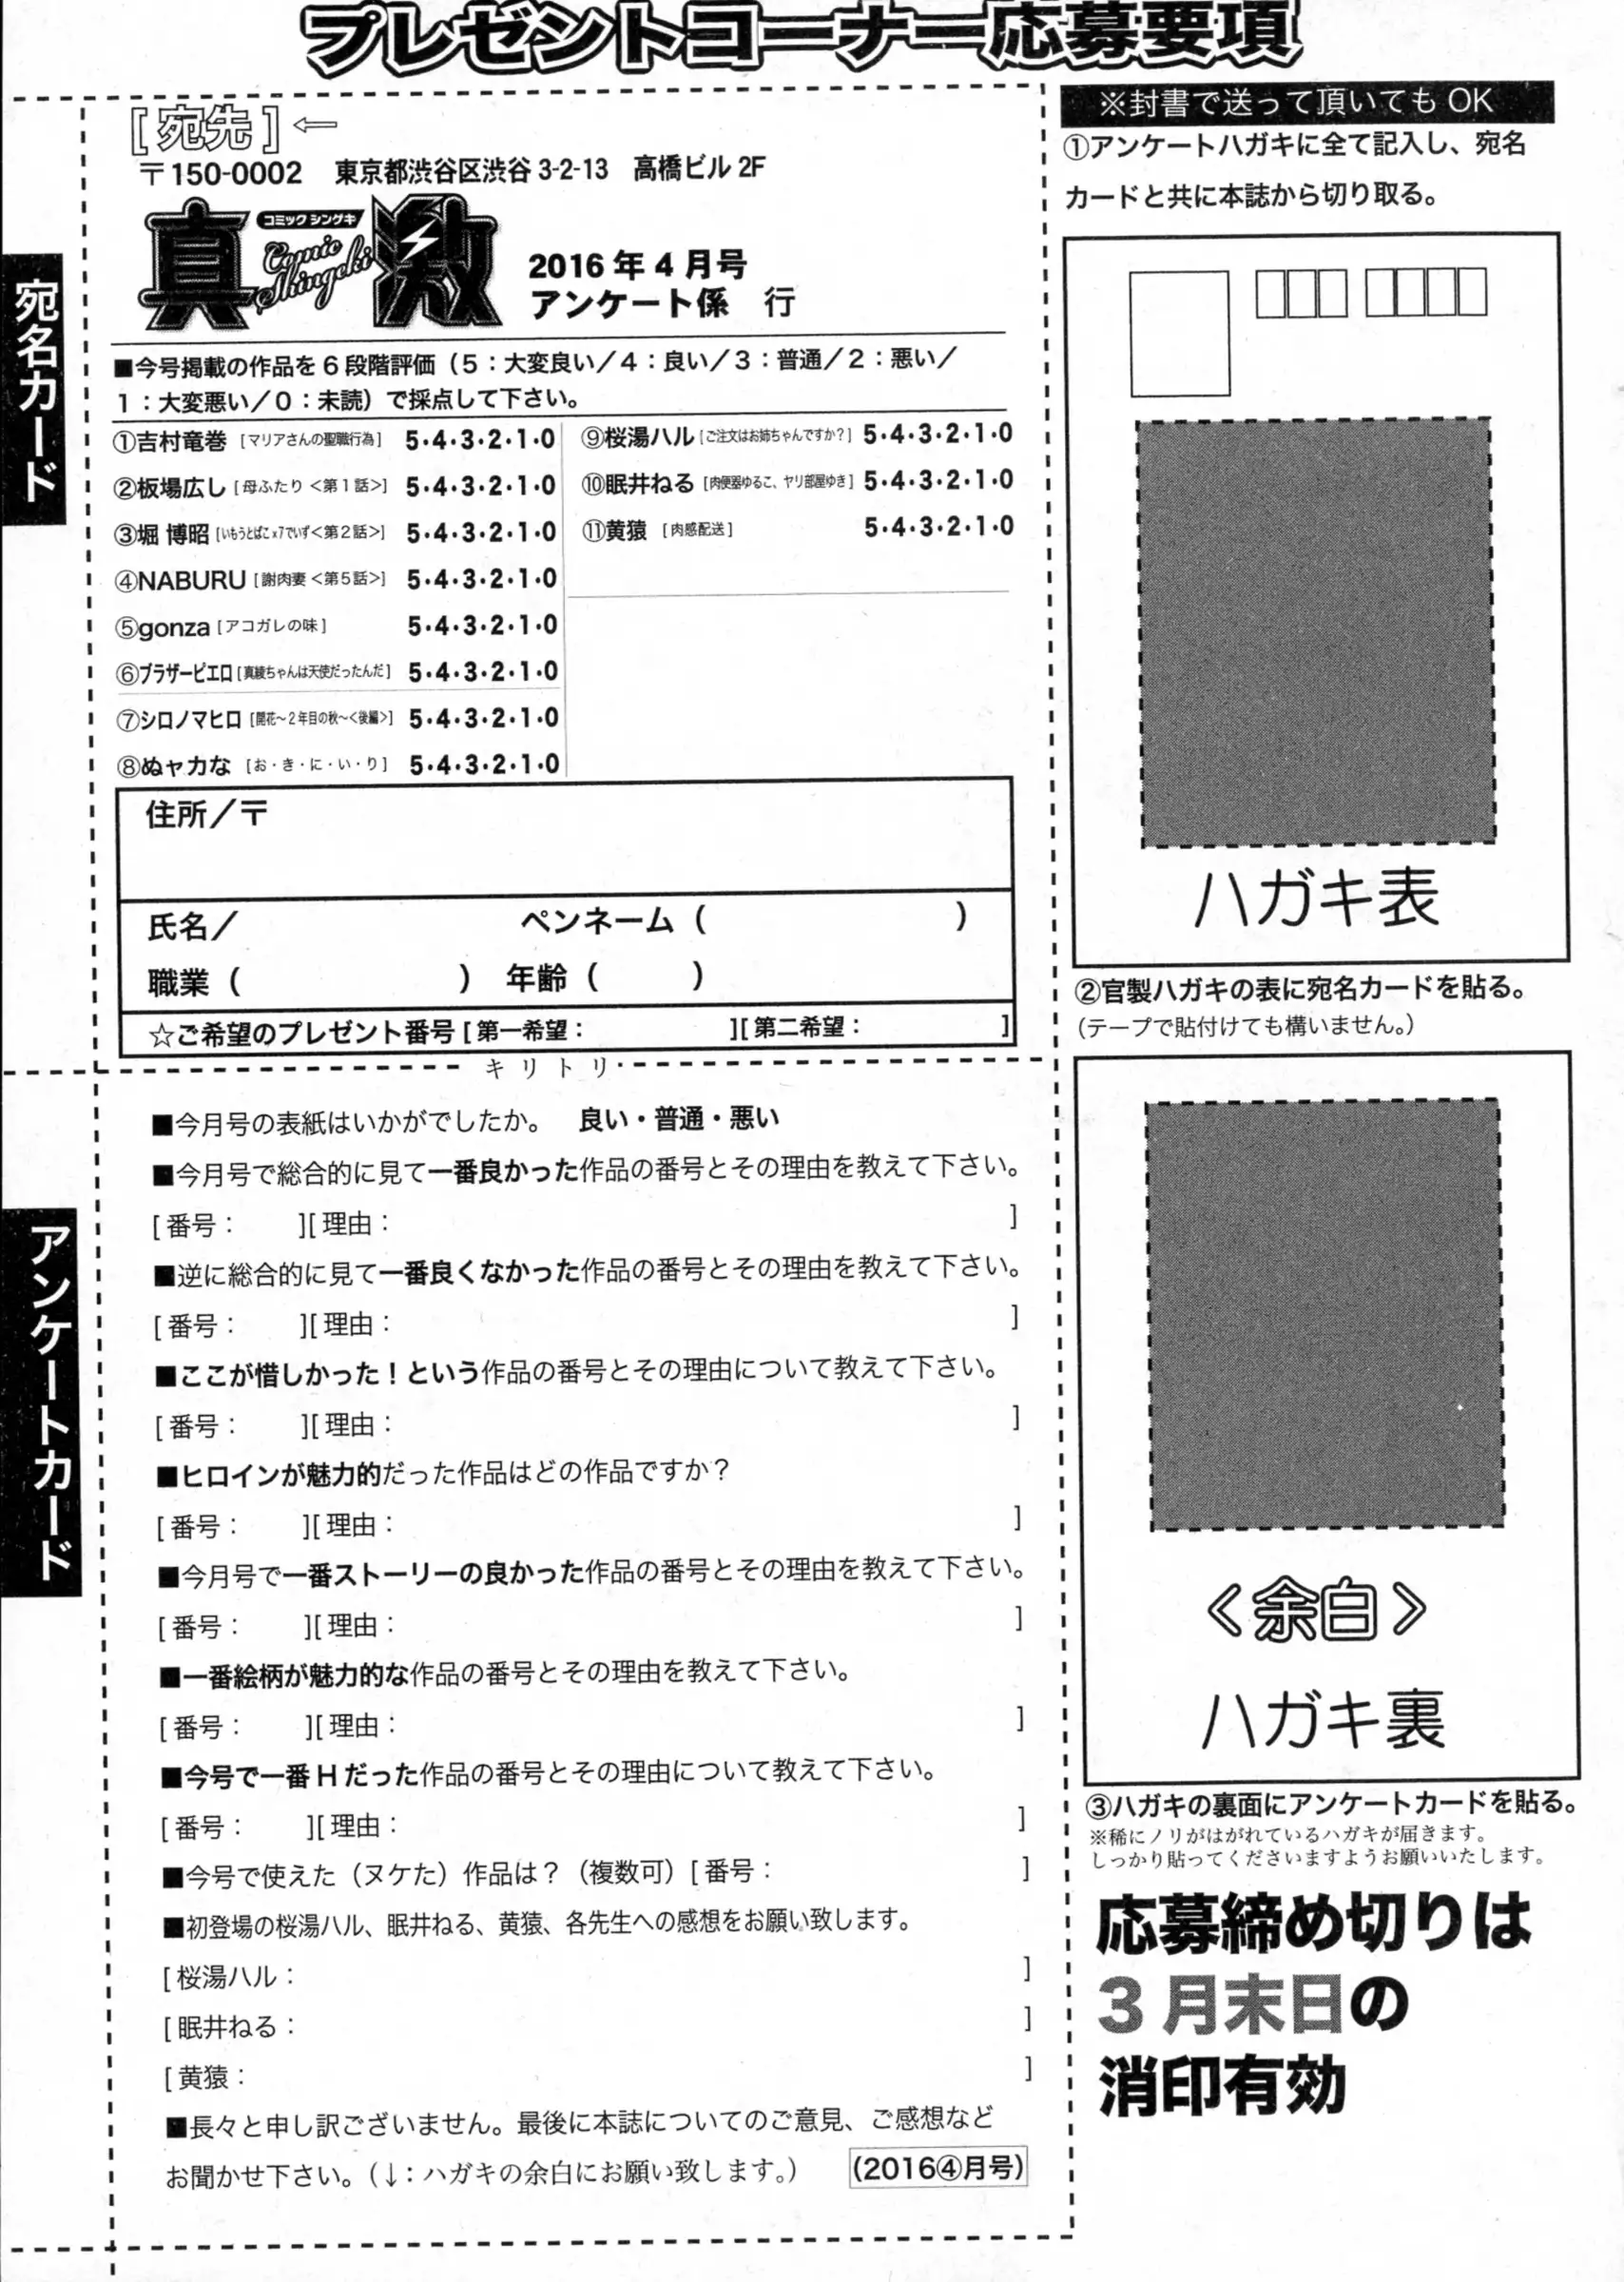 プレゼントコーナー応募要項
[宛先]←
〒150-0002　東京都渋谷区渋谷 3-2-13　高橋ビル 2F
真激
コミックシンゲキ
Comic Shingeki
2016 年 4 月号
アンケート係　行
宛名カード
■今号掲載の作品を 6 段階評価（5：大変良い／4：良い／3：普通／2：悪い／
1：大変悪い／0：未読）で採点して下さい。
①吉村竜巻 [マリアさんの聖職行為] 5・4・3・2・1・0
②板場広し [母ふたり <第１話>] 5・4・3・2・1・0
③堀 博昭 [いもうとぱこx7でいず<第２話>] 5・4・3・2・1・0
④NABURU [謝肉妻 <第５話>] 5・4・3・2・1・0
⑤gonza [アコガレの味] 5・4・3・2・1・0
⑥ブラザーピエロ [真綾ちゃんは天使だったんだ] 5・4・3・2・1・0
⑦シロノマヒロ [開花〜２年目の秋〜<後編>] 5・4・3・2・1・0
⑧ぬャカな [お・き・に・い・り] 5・4・3・2・1・0
⑨桜湯ハル [ご注文はお姉ちゃんですか？] 5・4・3・2・1・0
⑩眠井ねる [肉便器ゆるこ、ヤリ部屋ゆき] 5・4・3・2・1・0
⑪黄猿 [肉感配送] 5・4・3・2・1・0
住所／〒
氏名／　ペンネーム（　）
職業（　）　年齢（　）
☆ご希望のプレゼント番号 [ 第一希望：　][ 第二希望：　]
キリトリ
アンケートカード
■今月号の表紙はいかがでしたか。　良い・普通・悪い
■今月号で総合的に見て一番良かった作品の番号とその理由を教えて下さい。
[ 番号：　][ 理由：　]
■逆に総合的に見て一番良くなかった作品の番号とその理由を教えて下さい。
[ 番号：　][ 理由：　]
■ここが惜しかった！という作品の番号とその理由について教えて下さい。
[ 番号：　][ 理由：　]
■ヒロインが魅力的だった作品はどの作品ですか？
[ 番号：　][ 理由：　]
■今月号で一番ストーリーの良かった作品の番号とその理由を教えて下さい。
[ 番号：　][ 理由：　]
■一番絵柄が魅力的な作品の番号とその理由を教えて下さい。
[ 番号：　][ 理由：　]
■今号で一番 H だった作品の番号とその理由について教えて下さい。
[ 番号：　][ 理由：　]
■今号で使えた（ヌケた）作品は？（複数可）[ 番号：　]
■初登場の桜湯ハル、眠井ねる、黄猿、各先生への感想をお願い致します。
[ 桜湯ハル：　]
[ 眠井ねる：　]
[ 黄猿：　]
■長々と申し訳ございません。最後に本誌についてのご意見、ご感想など
お聞かせ下さい。（↓：ハガキの余白にお願い致します。）　(2016④月号)
※封書で送って頂いてもOK
①アンケートハガキに全て記入し、宛名
カードと共に本誌から切り取る。
ハガキ表
②官製ハガキの表に宛名カードを貼る。
（テープで貼付けても構いません。）
＜余白＞
ハガキ裏
③ハガキの裏面にアンケートカードを貼る。
※稀にノリがはがれているハガキが届きます。
しっかり貼ってくださいますようお願いいたします。
応募締め切りは
3 月末日の
消印有効